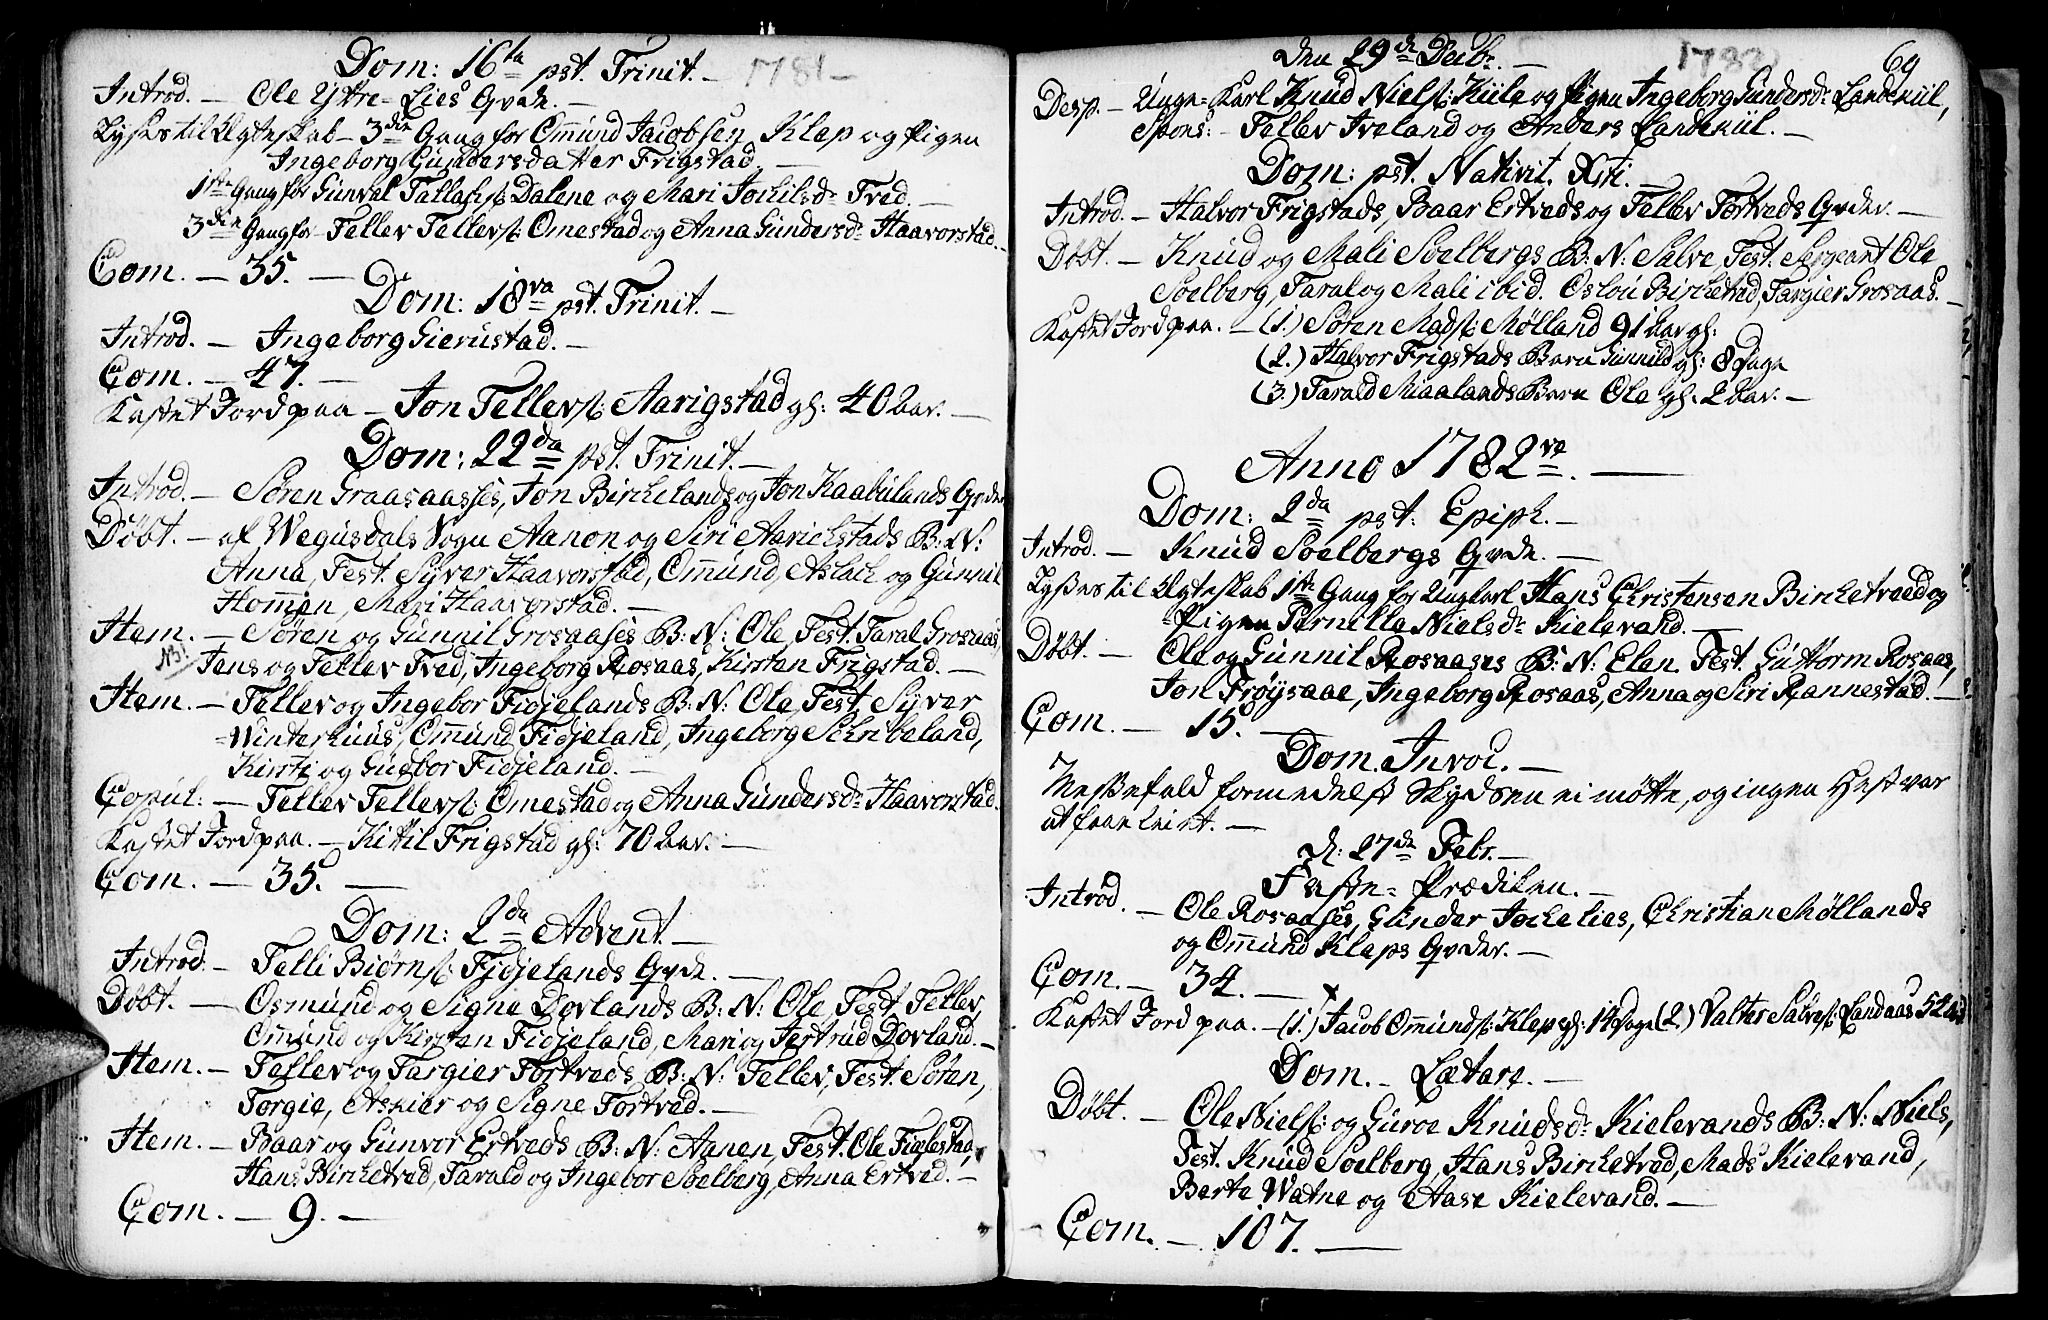 Dom: 16ta pst. Trinit. — 1781 —
Introd. — Ole Yttre-Lies Qvde. —
Lyses til Ægteskab — 3die Gang for Ommund Jacobsen Klep og Pigen
Ingeborg Gundersdatter Frigstad. —
1ste Gang for Gunval Tallafs: Dalene og Mari Jochilsdr Tved. —
3die Gang for Tellev Tellevs: Omestad og Anna Gundersdr Haavorstad. —
Com. — 35. —
Dom: 18va pst. Trinit. —
Introd. — Ingeborg Gierustad. —
Com. — 47. —
Kastet Jord paa — Jon Tellevs: Aarigstad gl: 40 Aar. —
Dom: 22da pst. Trinit. —
Introd. — Søren Graasaasses, Jon Birchelands og Jon Kaabulands Qvder
Døbt. — af Wegusdals Sogn Aanon og Siri Aarichstads B: N:
Anna, Test. Syver Haavorstad, Ommund, Aslach og Gunnil
Hommen, Mari Haavorstad. —
Item. — Søren og Gunnil Grosaases B: N: Ole, Test. Taral Grosaas,
NB! Jens og Tellev Tved, Ingeborg Rosaas, Kirsten Frigstad. —
Item. — Tellev og Ingebor Fidjelands B: N: Ole, Test. Syver
Winterhuus, Ommund Fidjeland, Ingeborg Schribeland,
Kirsti og Gudbor Fidjeland. —
Copul: — Tellev Tellevs: Omestad og Anna Gundersdr Haavorstad.
Kastet Jord paa. — Kittil Frigstad gl: 70 Aar. —
Com. — 35. —
Dom: 2da Advent. —
Introd. — Telli Biørns: Fidjelands Qvde. —
Døbt. — Osmund og Signe Dovlands B: N: Ole, Test. Tellev,
Omund og Kirsten Fidjeland, Mari og Jertrud Dovland. —
Item. — Tellev og Targier Tortveds B: N: Tellev, Test. Søren,
Torgie, Askier og Signe Tortved. —
Item. — Baar og Gunvor Ertveds B: N: Aanen, Test. Ole Fiælestad,
Hans Birchetved, Tarald og Ingebor Soelberg, Anna Ertved. —
Com. — 9. —
Den 29de Decbr. — 1782 69
Desp. — Unge-Karl Knud Niels: Kiile og Pigen Ingeborg Gundersdr Landekiil,
Spons: — Tellev Iveland og Anders Landekiil. —
Dom: pst. Nativit. Xti. —
Introd. — Halvor Frigstads, Baar Ertveds og Tellev Tortveds Qvder. —
Døbt. — Knud og Mali Soelbergs B: N: Salve, Test. Sergeant Ole
Soelberg, Taral og Mali ibid. Oslou Birchetved, Targier Grosaas. —
Kastet Jord paa. — (1.) Søren Mads: Mølland 91 Aar gl:
(2.) Halvor Frigstads Barn Gunnild gl: 8 Dage
(3.) Tarald Miaalands Barn Ole gl: 2 Aar. —
Anno 1782ve. —
Dom: 2da pst: Epiph. —
Introd. — Knud Soelbergs Qvde. —
Lyses til Ægteskab 1ste Gang for Ungkarl Hans Christensen Birchetveed og
Pigen Pernille Nielsdr Kielevand. —
Døbt. — Ole og Gunnil Rosaases B: N: Elen. Test. Guttorm Rosaas,
Jon Frøysaae, Ingeborg Rosaas, Anna og Siri Rannestad. —
Com. — 15. —
Dom. Invoc. —
Messefald formedelst Skydsen ei mötte, og ingen Hest var
at faae leiet. —
d: 27de Febr. —
Faste-Prædiken. —
Introd. — Ole Rosaases, Gunder Jochelies, Christian Møllands
og Ommund Kleps Qvder. —
Com. — 34. —
Kastet Jord paa. — (1.) Jacob Ommunds: Klep gl: 14 Dage (2.) Valter Salves: Landaas 52 Aar
Dom. — Lætare. —
Døbt. — Ole Niels: og Guroe Knudsdr Kielevands B: N: Niels,
Test. Knud Soelberg, Hans Birchetved, Mads Kielevand,
Berte Watne og Aase Kielevand. —
Com. — 107. —